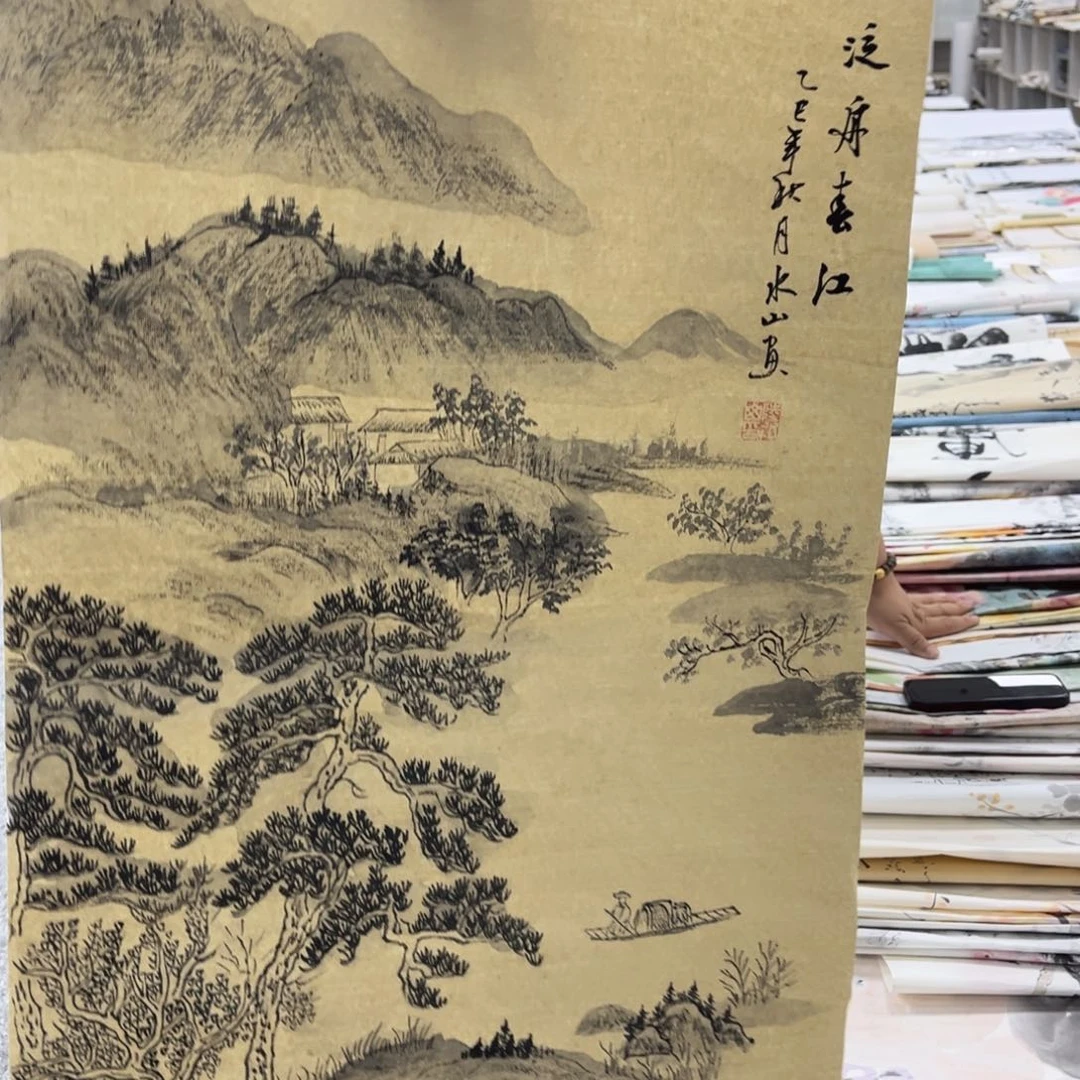 泛舟春江
乙巳年秋月水山画